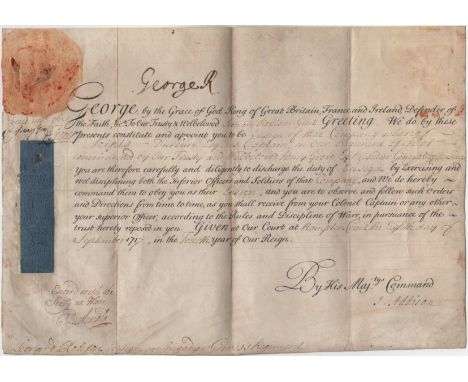 George R
George by the Grace of God King of Great Britain, France and Ireland, Defender of
the Faith, &c. To Our Trusty & Welbeloved Greeting. We do by these
presents constitute and appoint you to be of that Company whereof
Esq. is Captain in Our Regiment of Foot
commanded by Our Trusty and Welbeloved Henry Grove
You are therefore carefully and diligently to discharge the duty of Ensign by Exercising and
well disciplining both the Inferior Officers and Soldiers of that Company, and We do hereby
command them to obey you as their Ensign, and you are to observe and follow such Orders
and Directions from time, to time, as you shall receive from your Colonel Captain or any other
your Superior Officer, according to the Rules and Discipline of Warr, in pursuance of the
trust hereby reposed in you. Given at Our Court at Hampton Court the Eighth day of
September 1717, in the Fourth year of Our Reign.
By His Maj.tys Command
J. Addison
Entred with the